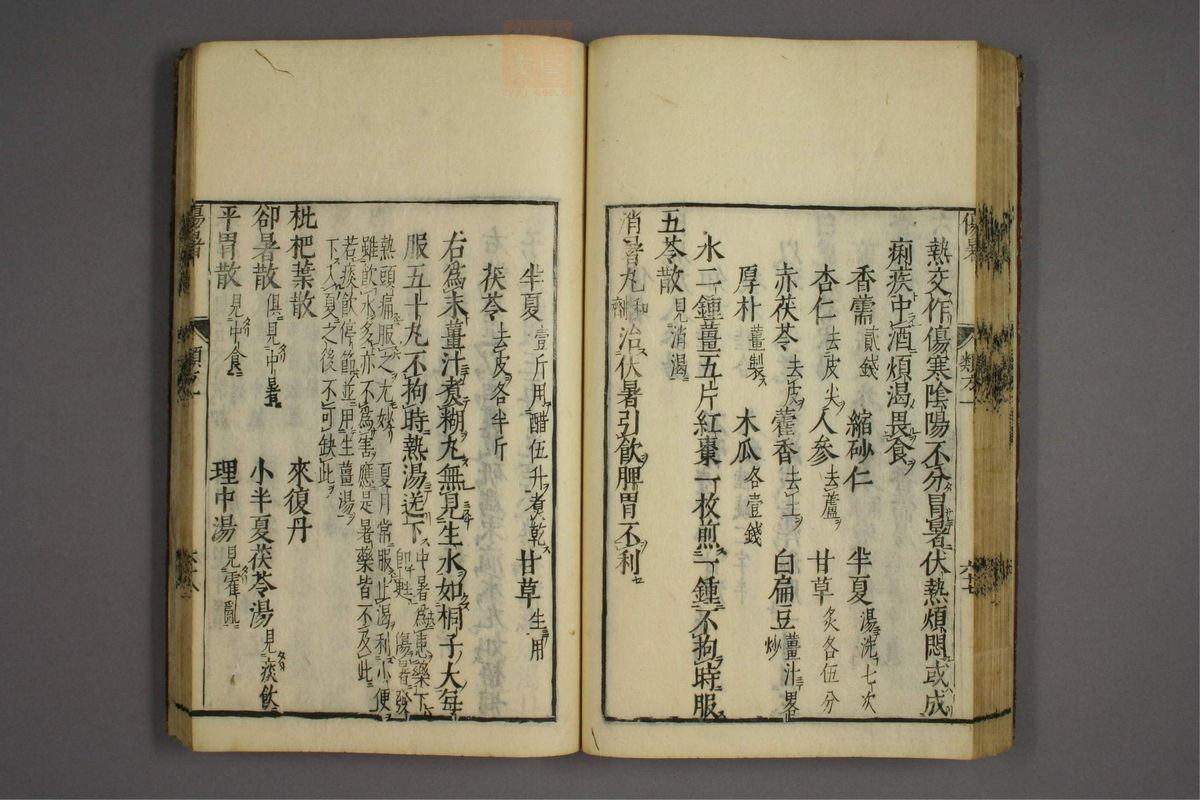 熱交作傷寒陰陽不分冒暑伏熱煩悶或成
痢疾中酒煩渴畏食
香薷貳錢 縮砂仁 半夏湯洗七次
杏仁去皮尖 人參去蘆 甘草炙各伍分
赤茯苓去皮 藿香去土 白扁豆薑汁畧炒
厚朴薑製 木瓜各壹錢
水二鍾薑五片紅棗一枚煎一鍾不拘時服
五苓散見消渴
消暑丸和劑治伏暑引飲脾胃不利
半夏壹斤用醋伍升煮乾 甘草生用
茯苓去皮各半斤
右爲末薑汁煑糊丸無見生水如桐子大每
服五十丸不拘時熱湯送下中暑爲患藥下
即甦傷暑發
熱頭痛服之尤妙夏月常服止渴利小便
雖飲水多亦不爲害應是暑藥皆不及此
若痰飲停節並用生薑湯
下入夏之後不可缺此
枇杷葉散 來復丹
卻暑散俱見中暑 小半夏茯苓湯見痰飲
平胃散見中食 理中湯見霍亂
傷暑